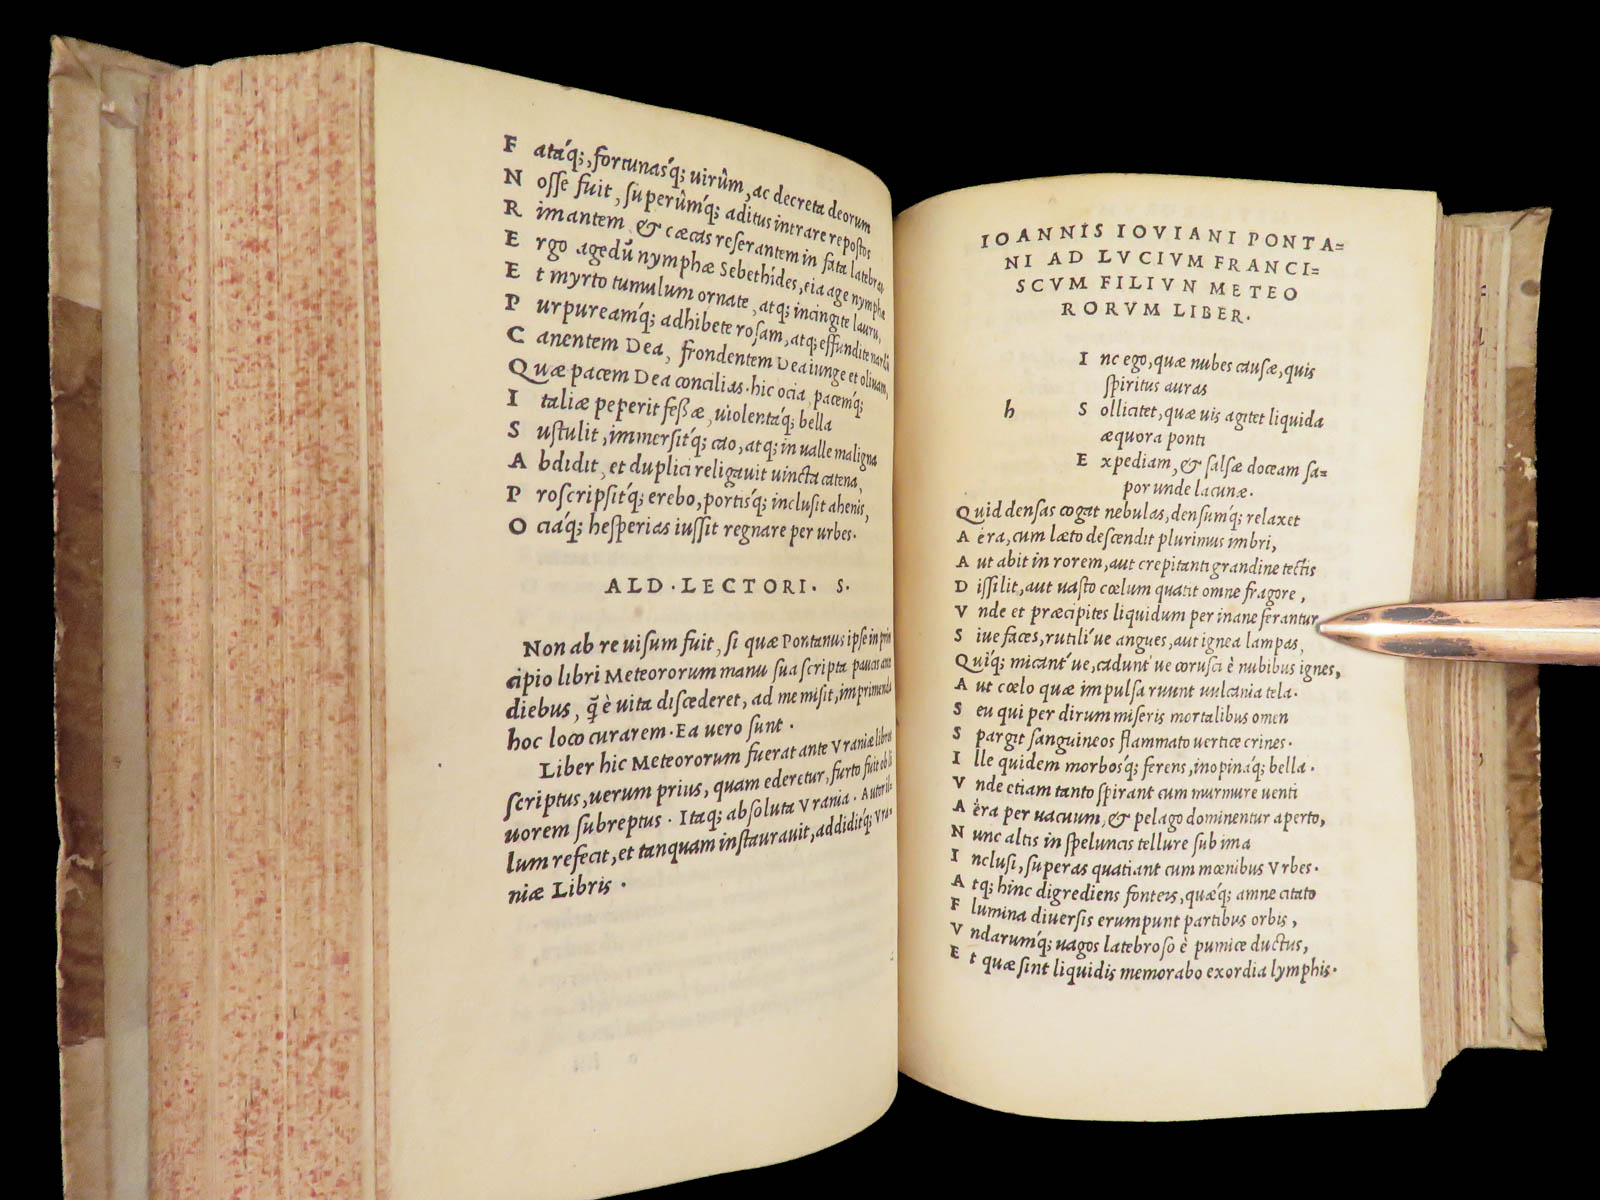 F atáq;, fortunasq́; uirûm, ac decreta deorum
N osse fuit, superûmq́; aditus intrare repostos
R imantem & cæcas reserantem in fata latebras
E rgo agedũ nymphæ Sebethides, eia age nymphæ
E t myrto tumulum ornate, atq; incingite lauru,
P urpureamq́; adhibete rosam, atq; effundite nardū
C anentem Dea, frondentem Dea iunge et oliuam,
Q uæ pacem Dea concilias. hic ocia, pacemq́;
I taliæ peperit feßæ, uiolentaq́; bella
S ustulit, immersitq́; cao, atq; in ualle maligna
A bdidit, et duplici religauit uincta catena,
P roscripsitq́; erebo, portisq́; inclusit ahenis,
O ciaq́; hesperias iussit regnare per urbes.
ALD. LECTORI. S.
Non ab re uisum fuit, si quæ Pontanus ipse in prin
cipio libri Meteororum manu sua scripta paucis ante
diebus, q̃ è uita discederet, ad me misit, imprimenda
hoc loco curarem. Ea uero sunt.
Liber hic Meteororum fuerat ante Vraniæ libros
scriptus, uerum prius, quam ederetur, furto fuit ob li
uorem subreptus. Itaq; absoluta Vrania. Autor il=
lum refecit, et tanquam instaurauit, addiditq́; Vra=
niæ Libris.
IOANNIS IOVIANI PONTA=
NI AD LVCIVM FRANCI=
SCVM FILIVN METEO
RORVM LIBER.
I nc ego, quæ nubes causæ, quis
spiritus auras
h
S ollicitet, quæ uis agitet liquida
æquora ponti
E xpediam, & salsæ doceam sa=
por unde lacunæ.
Q uid densas cogat nebulas, densumq́; relaxet
A ëra, cum læto descendit plurimus imbri,
A ut abit in rorem, aut crepitanti grandine tectis
D issilit, aut uasto cœlum quatit omne fragore,
V nde et præcipites liquidum per inane ferantur
S iue faces, rutili ue angues, aut ignea lampas,
Q uiq́; micant ue, cadunt ue corusci è nubibus ignes,
A ut cœlo quæ impulsa ruunt uulcania tela.
S eu qui per dirum miseris mortalibus omen
S pargit sanguineos flammato uertice crines.
I lle quidem morbosq́; ferens, inopinaq́; bella.
V nde etiam tanto spirant cum murmure uenti
A ëra per uacuum, & pelago dominentur aperto,
N unc altis in speluncis tellure sub ima
I nclusi, superas quatiant cum mœnibus Vrbes.
A tq; hinc digrediens fonteis, quæq́; amne citato
F lumina diuersis erumpunt partibus orbis,
V ndarumq́; uagos latebroso è pumice ductus,
E t quæ sint liquidis memorabo exordia lymphis.